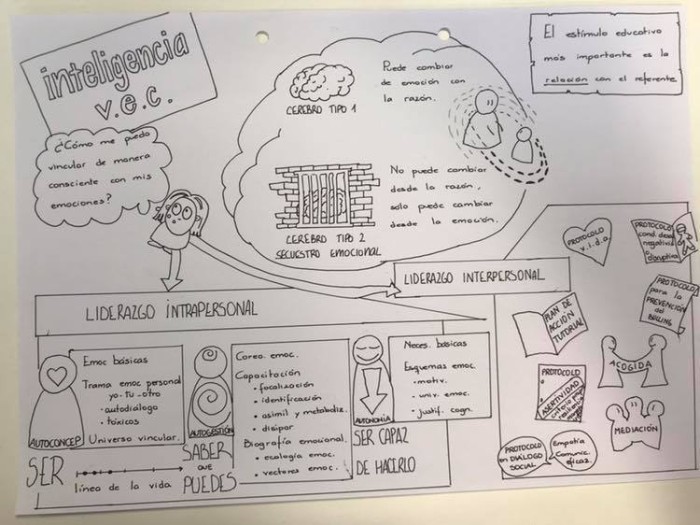 inteligencia
v.e.c.
¿Cómo me puedo
vincular de manera
consciente con mis
emociones?
CEREBRO TIPO 1
Puede cambiar
de emoción con
la razón.
CEREBRO TIPO 2
SECUESTRO EMOCIONAL
No puede cambiar
desde la razón,
solo puede cambiar
desde la emoción.
El estímulo educativo
más importante es la
relación con el referente
LIDERAZGO INTRAPERSONAL
LIDERAZGO INTERPERSONAL
AUTOCONCEP
Emoc básicas
Trama emoc personal
yo-tu-otro
-autodiálogo
-tóxicos
Universo vincular.
SER
línea de la vida
AUTOGESTIÓN
SABER
QUE
PUEDES
Conoc. emoc.
Capacitación
• focalización
• identificación
• asimil y metaboliz.
• disipar
Biografía emocional.
• ecología emoc.
• vectores emoc.
AUTONOMÍA
SER CAPAZ
DE HACERLO
Neces. básicas
Esquemas emoc.
-motiv.
-univ. emoc.
-justif. cogn.
PROTOCOLO
v.i.d.a.
PROTOCOLO
negativas
disruptivas
PROTOCOLO
para la
PREVENCIÓN
del
BULLING
PLAN DE
ACCIÓN
TUTORIAL
ACOGIDA
PROTOCOLO
ASERTIVIDAD
MEDIACIÓN
PROTOCOLO
en DIÁLOGO
SOCIAL
Empatía
Comunic.
eficaz.